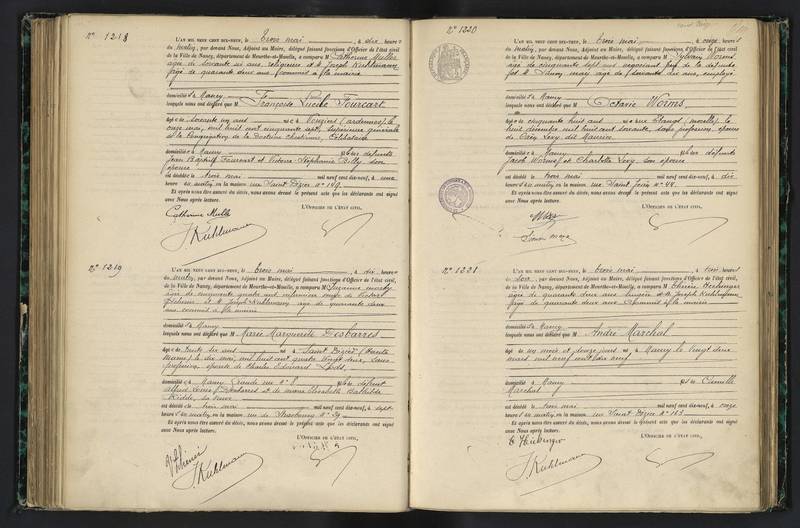 N° 1218
L'AN MIL NEUF CENT DIX-NEUF, le trois mai, à dix heures
du matin, par devant Nous, Adjoint au Maire, délégué faisant fonctions d'Officier de l'état civil
de la Ville de Nancy, département de Meurthe-et-Moselle, a comparu M Catherine Muller
âgée de soixante six ans, religieuse et M Joseph Kuhlmann
âgé de quarante deux ans, commis à la mairie
domicilié s à Nancy
lesquels nous ont déclaré que M Françoise Lucile Fourcart
âgé e de soixante un ans né e à Vouziers (Ardennes) le
onze mai, mil huit cent cinquante sept, supérieure générale
de la Congrégation de la Doctrine chrétienne, Célibataire
domicilié e à Nancy fille de défunts
Jean Baptiste Fourcart et Victoire Stéphanie Billy, son
épouse
est décédé e le trois mai mil neuf cent dix-neuf, à
heures du matin, en la maison rue Saint Dizier n° 149
Et après nous être assuré du décès, nous avons dressé le présent acte que les déclarants ont signé
avec Nous après lecture.
L'OFFICIER DE L'ÉTAT CIVIL,
Catherine Muller
J. Kuhlmann
N° 1219
L'AN MIL NEUF CENT DIX-NEUF, le trois mai, à dix heures
du matin, par devant Nous, Adjoint au Maire, délégué faisant fonctions d'Officier de l'état civil
de la Ville de Nancy, département de Meurthe-et-Moselle, a comparu M Suzanne
de cinquante quatre ans
et M Joseph Kuhlmann âgé de quarante deux
ans, commis à la mairie
domicilié s à Nancy
lesquels nous ont déclaré que M Marie Marguerite Desbarres
âgé e de trente six ans né e à Saint Dizier (Haute
Marne) le dix mai, mil huit cent quatre vingt deux, sans
profession, épouse de Charles Edouard
domicilié e à Nancy fille de défunt
Alfred Louis Desbarres et de Marie Elisabeth Mathilde
sa veuve
est décédé e le trois mai mil neuf cent dix-neuf, à sept
heures du matin, en la maison rue de Strasbourg n° 29
Et après nous être assuré du décès, nous avons dressé le présent acte que les déclarants ont signé
avec Nous après lecture.
L'OFFICIER DE L'ÉTAT CIVIL,
J. Kuhlmann
N° 1220
L'AN MIL NEUF CENT DIX-NEUF, le trois mai, à onze heures
du matin, par devant Nous, Adjoint au Maire, délégué faisant fonctions d'Officier de l'état civil
de la Ville de Nancy, département de Meurthe-et-Moselle, a comparu M Sylvain Worms
âgé de cinquante sept ans, négociant, frère de la défunte
et M Simon May âgé de soixante dix ans, employé
domicilié s à Nancy
lesquels nous ont déclaré que M Octavie Worms
âgé e de cinquante huit ans né e à (Moselle) le
huit décembre mil huit cent soixante, sans profession, épouse
de Lévy
domicilié e à Nancy fille de défunts
Jacob Worms et Charlotte Lévy, son épouse
est décédé e le trois mai mil neuf cent dix-neuf, à dix
heures du matin, en la maison rue Saint Jean n° 44
Et après nous être assuré du décès, nous avons dressé le présent acte que les déclarants ont signé
avec Nous après lecture.
L'OFFICIER DE L'ÉTAT CIVIL,
Simon May
N° 1221
L'AN MIL NEUF CENT DIX-NEUF, le trois mai, à trois heures
du soir, par devant Nous, Adjoint au Maire, délégué faisant fonctions d'Officier de l'état civil
de la Ville de Nancy, département de Meurthe-et-Moselle, a comparu M
âgée de quarante deux ans, lingère et M Joseph Kuhlmann
âgé de quarante deux ans, commis à la mairie
domicilié s à Nancy
lesquels nous ont déclaré que M André Marchal
âgé de un mois et douze jours né à Nancy le vingt deux
mars mil neuf cent dix neuf
domicilié à Nancy fils de Camille
Marchal
est décédé le trois mai mil neuf cent dix-neuf, à onze
heures du matin, en la maison rue Saint Dizier n° 163
Et après nous être assuré du décès, nous avons dressé le présent acte que les déclarants ont signé
avec Nous après lecture.
L'OFFICIER DE L'ÉTAT CIVIL,
J. Kuhlmann